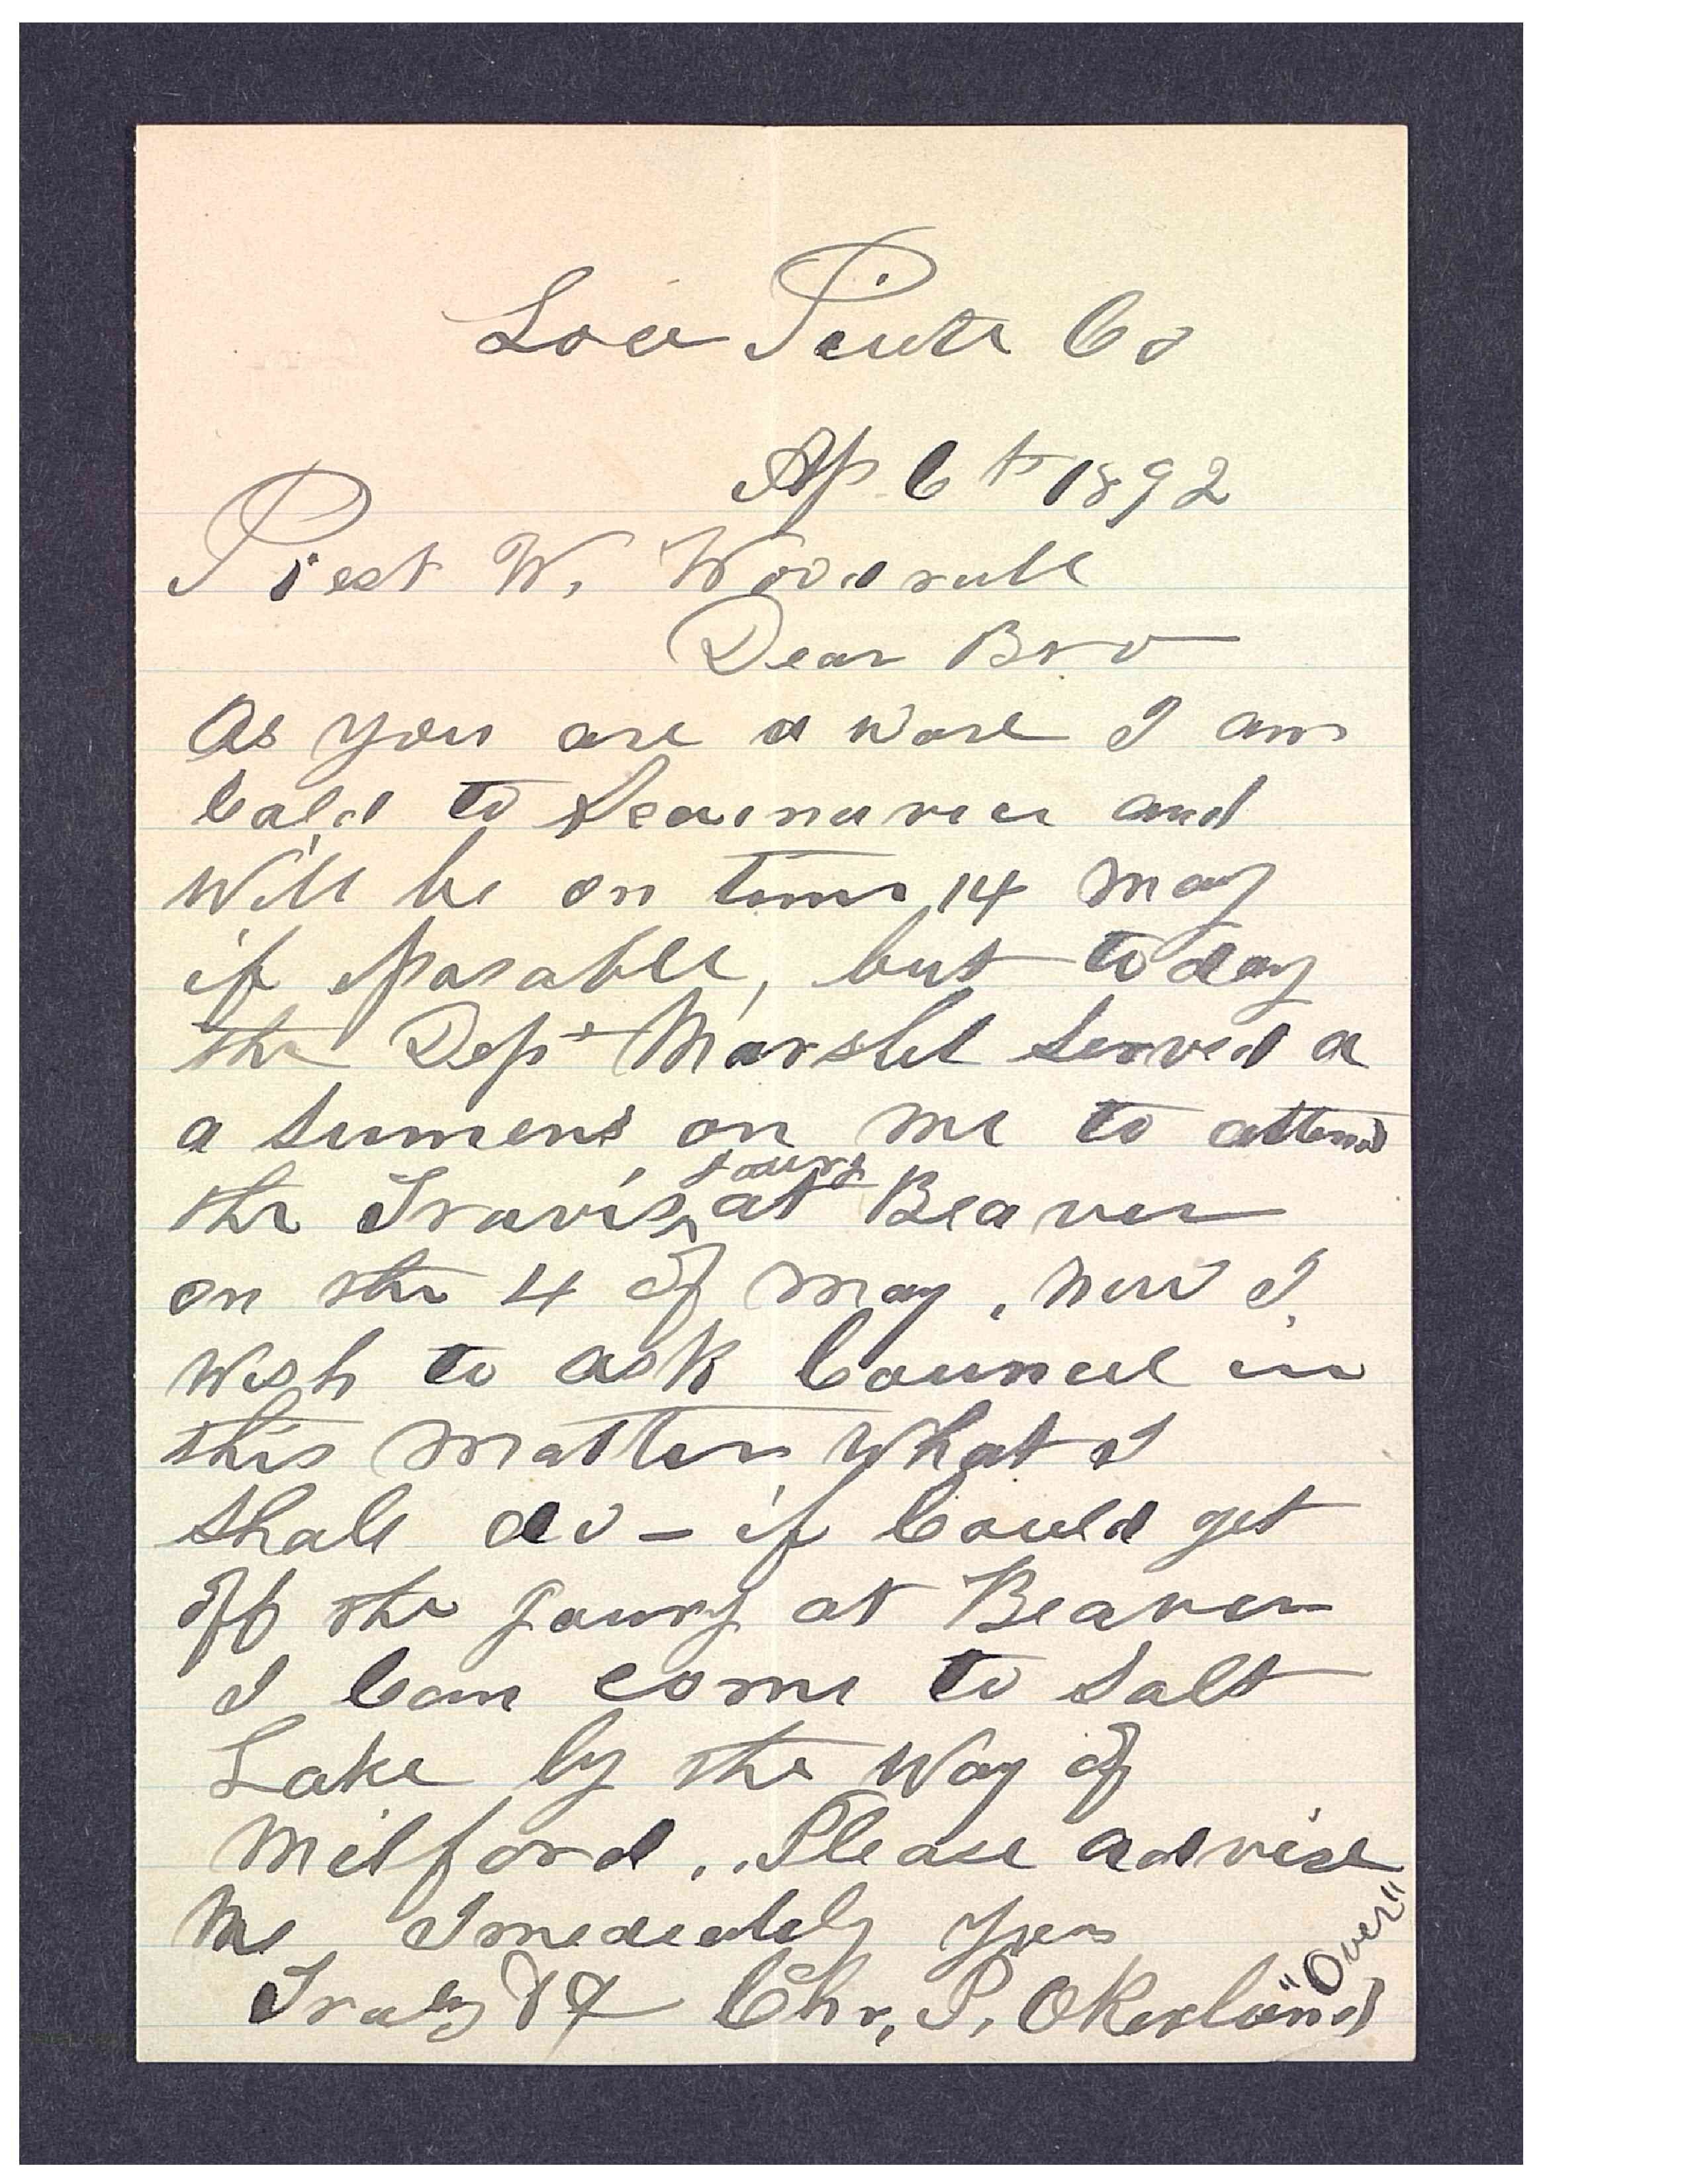 Loa Piute Co
Ap 6th 1892
Prest W. Woodruff
Dear Bro
As you are a ware I am
Cald to Scandinavia and
Will be on time 14 May
if Posable, but to day
the Dept Marshl served a
a sumens on me to attend
the Travis, joury at Beaver
on the 4 of May, Now I
Wish to ask Councel in
this Matter What I
shall do - if Could get
off the Joury at Beaver
I Can come to Salt
Lake by the Way of
Milford. Please advise
Me Imediately Yours
Truly &c Chr, P, Okerlund
"Over"